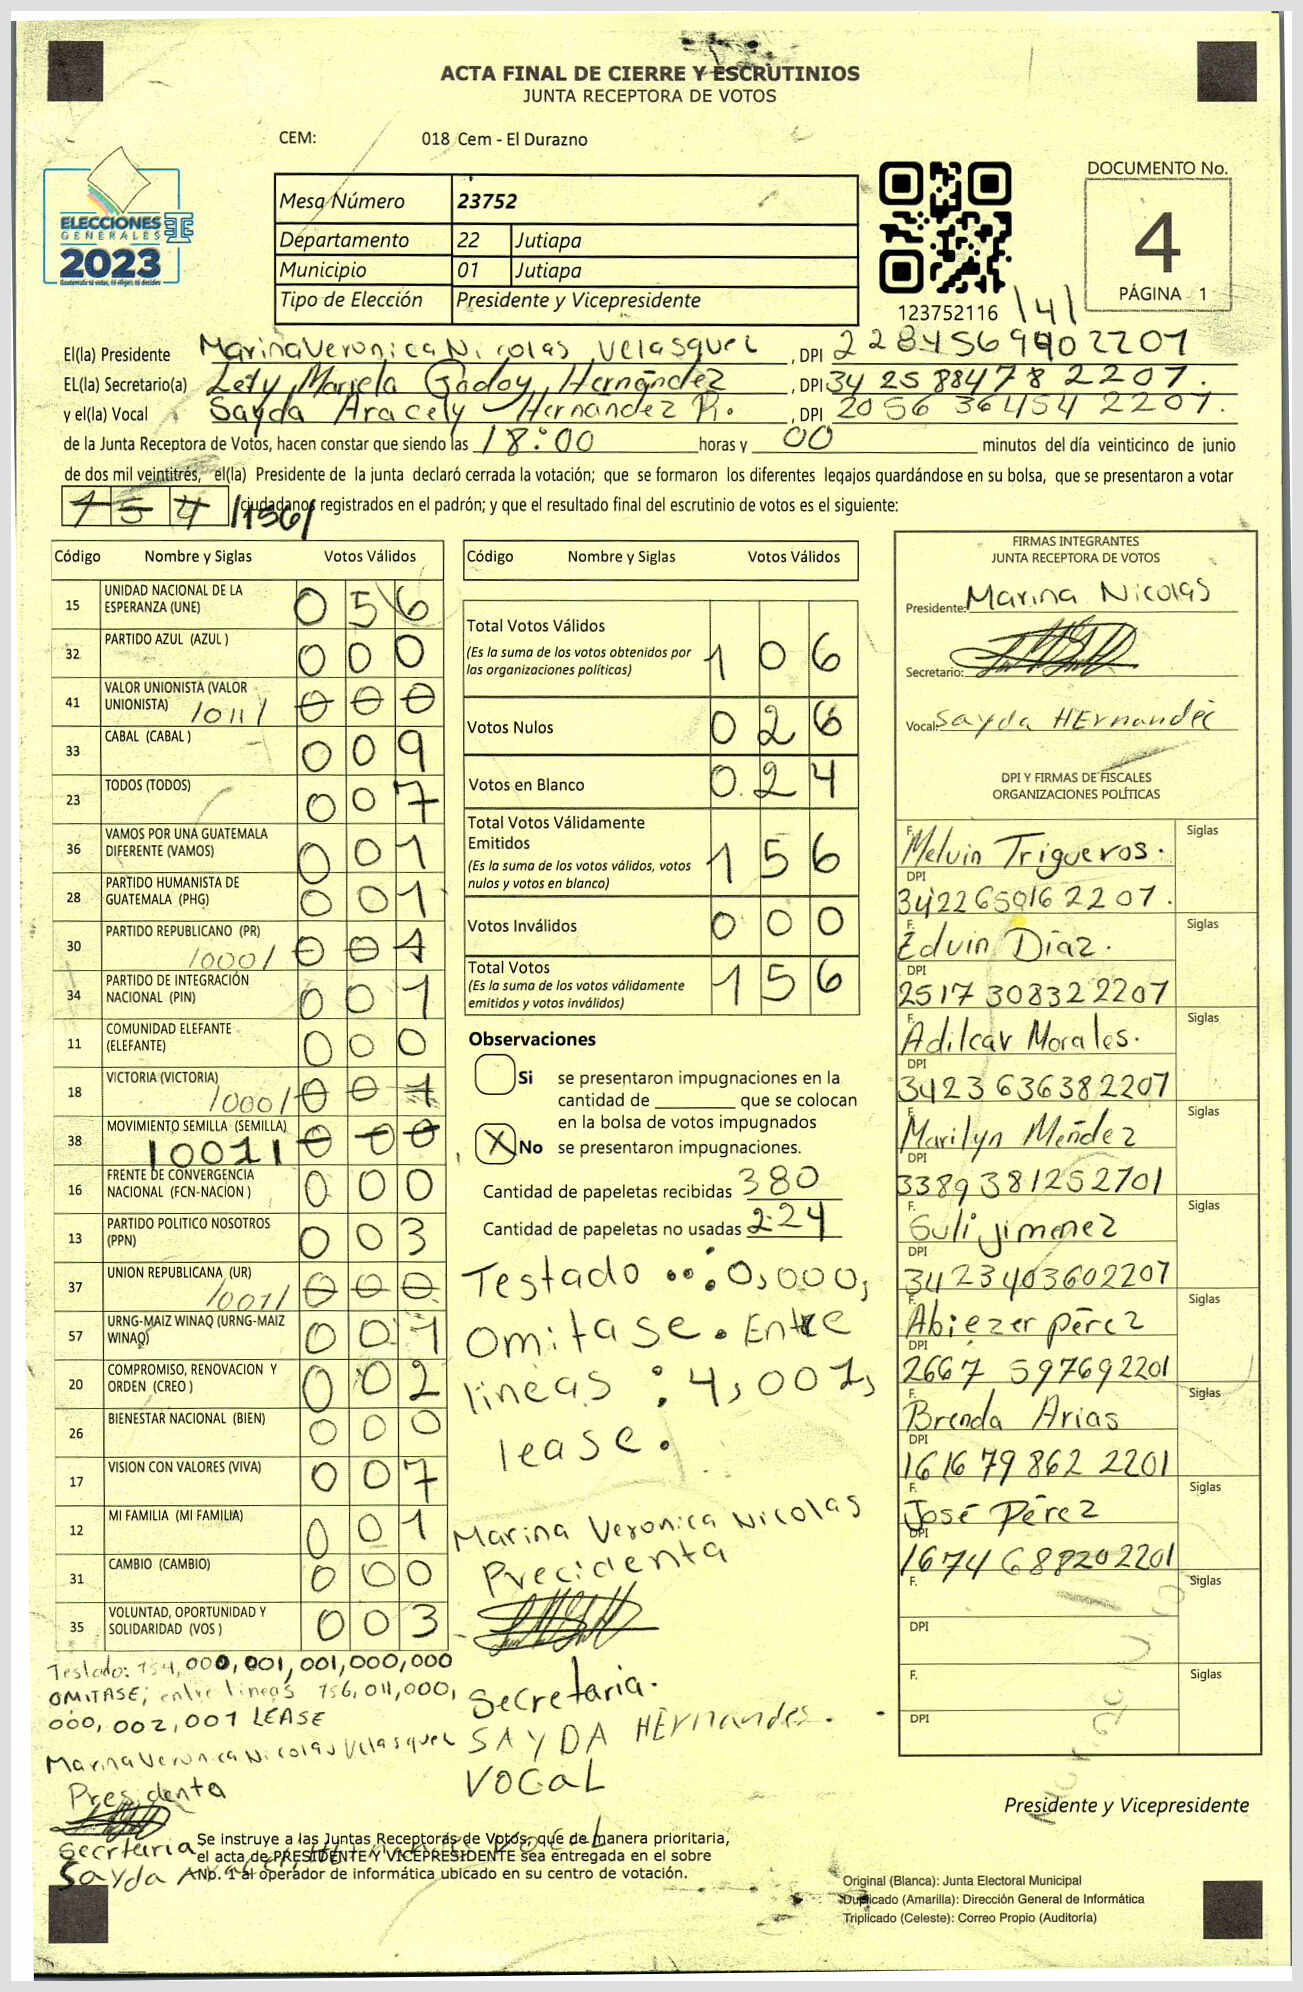 ACTA FINAL DE CIERRE Y ESCRUTINIOS
JUNTA RECEPTORA DE VOTOS
CEM: 018 Cem - El Durazno
ELECCIONES
GENERALES
2023
Mesa Número 23752
Departamento 22 Jutiapa
Municipio 01 Jutiapa
Tipo de Elección Presidente y Vicepresidente
123752116
DOCUMENTO No.
4
PÁGINA 1
/4/
El(la) Presidente Marina Veronica Nicolas Velasquez , DPI
EL(la) Secretario(a) Lety Mariela Godoy Hernández , DPI 34 25 88478 2207.
y el(la) Vocal Sayda Aracely Hernández R. , DPI 2056 36454 2207.
de la Junta Receptora de Votos, hacen constar que siendo las 18:00 horas y 00 minutos del día veinticinco de junio
de dos mil veintitrés, el(la) Presidente de la junta declaró cerrada la votación; que se formaron los diferentes legajos guardándose en su bolsa, que se presentaron a votar
154 /156/ ciudadanos registrados en el padrón; y que el resultado final del escrutinio de votos es el siguiente:
Código Nombre y Siglas Votos Válidos
15 UNIDAD NACIONAL DE LA ESPERANZA (UNE) 0 5 6
32 PARTIDO AZUL (AZUL ) 0 0 0
41 VALOR UNIONISTA (VALOR UNIONISTA) /011/ 0 0 0
33 CABAL (CABAL ) 0 0 9
23 TODOS (TODOS) 0 0 7
36 VAMOS POR UNA GUATEMALA DIFERENTE (VAMOS) 0 0 1
28 PARTIDO HUMANISTA DE GUATEMALA (PHG) 0 0 1
30 PARTIDO REPUBLICANO (PR) /000/ 0 0 1
34 PARTIDO DE INTEGRACIÓN NACIONAL (PIN) 0 0 1
11 COMUNIDAD ELEFANTE (ELEFANTE) 0 0 0
18 VICTORIA (VICTORIA) /000/ 0 0 1
38 MOVIMIENTO SEMILLA (SEMILLA) 0 0 0
16 FRENTE DE CONVERGENCIA NACIONAL (FCN-NACION ) 0 0 0
13 PARTIDO POLITICO NOSOTROS (PPN) 0 0 3
37 UNION REPUBLICANA (UR) /001/ 0 0 0
57 URNG-MAIZ WINAQ (URNG-MAIZ WINAQ) 0 0 1
20 COMPROMISO, RENOVACION Y ORDEN (CREO ) 0 0 2
26 BIENESTAR NACIONAL (BIEN) 0 0 0
17 VISION CON VALORES (VIVA) 0 0 7
12 MI FAMILIA (MI FAMILIA) 0 0 1
31 CAMBIO (CAMBIO) 0 0 0
35 VOLUNTAD, OPORTUNIDAD Y SOLIDARIDAD (VOS ) 0 0 3
Testado: 154,000,001,001,000,000
OMITASE; entre lineas 156, 011,000,
000, 002, 001 LEASE
Marina Veronica Nicolas Velasquez
Presidenta
Secrtaria
Sayda
Código Nombre y Siglas Votos Válidos
Total Votos Válidos 1 0 6
(Es la suma de los votos obtenidos por
las organizaciones políticas)
Votos Nulos 0 2 6
Votos en Blanco 0 2 4
Total Votos Válidamente
Emitidos 1 5 6
(Es la suma de los votos válidos, votos
nulos y votos en blanco)
Votos Inválidos 0 0 0
Total Votos 1 5 6
(Es la suma de los votos válidamente
emitidos y votos inválidos)
Observaciones
Si se presentaron impugnaciones en la
cantidad de ________ que se colocan
en la bolsa de votos impugnados
X No se presentaron impugnaciones.
Cantidad de papeletas recibidas 380
Cantidad de papeletas no usadas 224
Testado : 0,000,
omitase. Entre
lineas : 4,001,
lease.
Marina Veronica Nicolas
Precidenta
Secretaria.
SAYDA HErnandes.
VOCaL
FIRMAS INTEGRANTES
JUNTA RECEPTORA DE VOTOS
Presidente: Marina Nicolas
Secretario:
Vocal: Sayda HErnandéz
DPI Y FIRMAS DE FISCALES
ORGANIZACIONES POLÍTICAS
F. Melvin Trigueros. Siglas
DPI 3422650162207.
F. Edvin Díaz. Siglas
DPI 2517 30832 2207
F. Adilcar Morales. Siglas
DPI 3423636382207
F. Marilyn Méndez Siglas
DPI 3389381252701
F. Suli Jimenez Siglas
DPI 3423403602207
F. Abiezer pérez Siglas
DPI 2667 597692201
F. Brenda Arias Siglas
DPI 1616 79 862 2201
F. José Pérez Siglas
DPI 1674 688202201
F. Siglas
DPI
F. Siglas
DPI
Presidente y Vicepresidente
Se instruye a las Juntas Receptoras de Votos, que de manera prioritaria,
el acta de PRESIDENTE Y VICEPRESIDENTE sea entregada en el sobre
No. 1 al operador de informática ubicado en su centro de votación.
Original (Blanca): Junta Electoral Municipal
Duplicado (Amarilla): Dirección General de Informática
Triplicado (Celeste): Correo Propio (Auditoría)